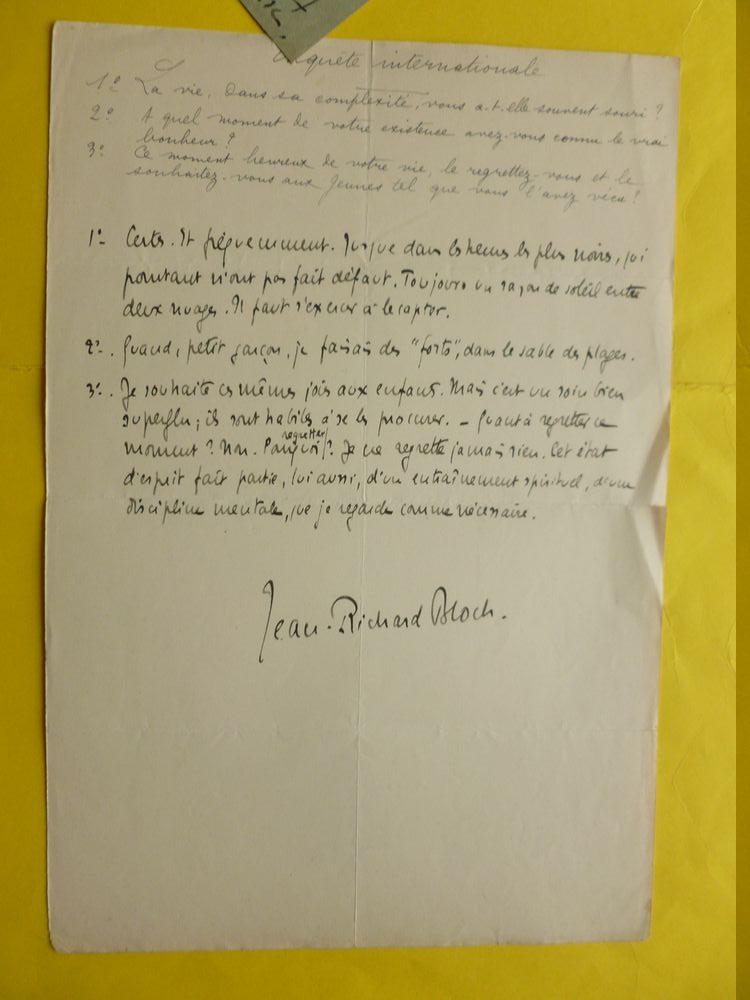 Enquête internationale
1º La vie, dans sa complexité, vous a-t-elle souvent souri ?
2º A quel moment de votre existence avez-vous connu le vrai
bonheur ?
3º Ce moment heureux de votre vie, le regrettez-vous et le
souhaitez-vous aux Jeunes tel que vous l'avez vécu ?
1º- Certes. Et fréquemment. Jusque dans les heures les plus noires, qui
pourtant n'ont pas fait défaut. Toujours un rayon de soleil entre
deux nuages. Il faut s'exercer à le capter.
2º-. Quand, petit garçon, je faisais des "forts", dans le sable des plages.
3º-. Je souhaite ces mêmes joies aux enfants. Mais c'est un soin bien
superflu ; ils sont habiles à se les procurer. – Quant à regretter ce
moment ? Non. Pourquoi regretter ? Je ne regrette jamais rien. Cet état
d'esprit fait partie, lui aussi, d'un entraînement spirituel, d'une
discipline mentale, que je regarde comme nécessaire.
Jean-Richard Bloch.